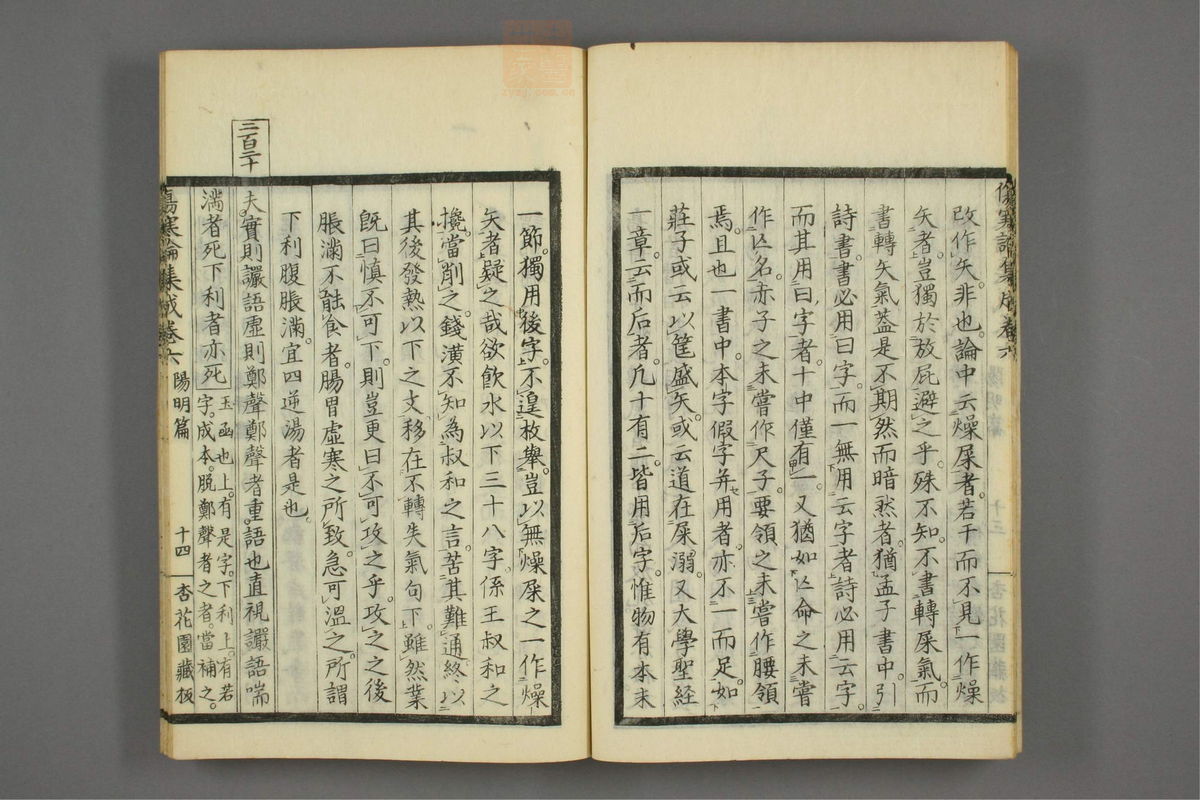 傷寒論集成卷六
改作矢非也論中云燥屎者若干而不見一作燥
矢者豈獨於放屁避之乎殊不知不書轉屎氣而
書轉矢氣蓋是不期然而暗然者猶孟子書中引
詩書書必用曰字而一無用云字者詩必用云字
而其用曰字者十中僅有一又猶如亾命之未嘗
作亾名赤子之未嘗作尺子要領之未嘗作腰領
焉且也一書中本字假字并用者亦不一而足如
莊子或云以筐盛矢或云道在屎溺又大學聖經
一章云而后者凡十有二皆用后字惟物有本末
一節獨用後字不遑枚舉豈以無燥屎之一作燥
矢者疑之哉欲飲水以下三十八字係王叔和之
攙當削之錢潢不知為叔和之言苦其難通終以
其後發熱以下之文移在不轉失氣句下雖然業
既曰慎不可下則豈更曰不可攻之乎攻之之後
脹滿不能食者腸胃虛寒之所致急可溫之所謂
下利腹脹滿宜四逆湯者是也
三百二十
夫實則讝語虛則鄭聲鄭聲者重語也直視讝語喘
滿者死下利者亦死玉函也上有是字下利上有若
字成本脫鄭聲者之者當補之
傷寒論集成卷六 陽明篇 十四 杏花園藏板